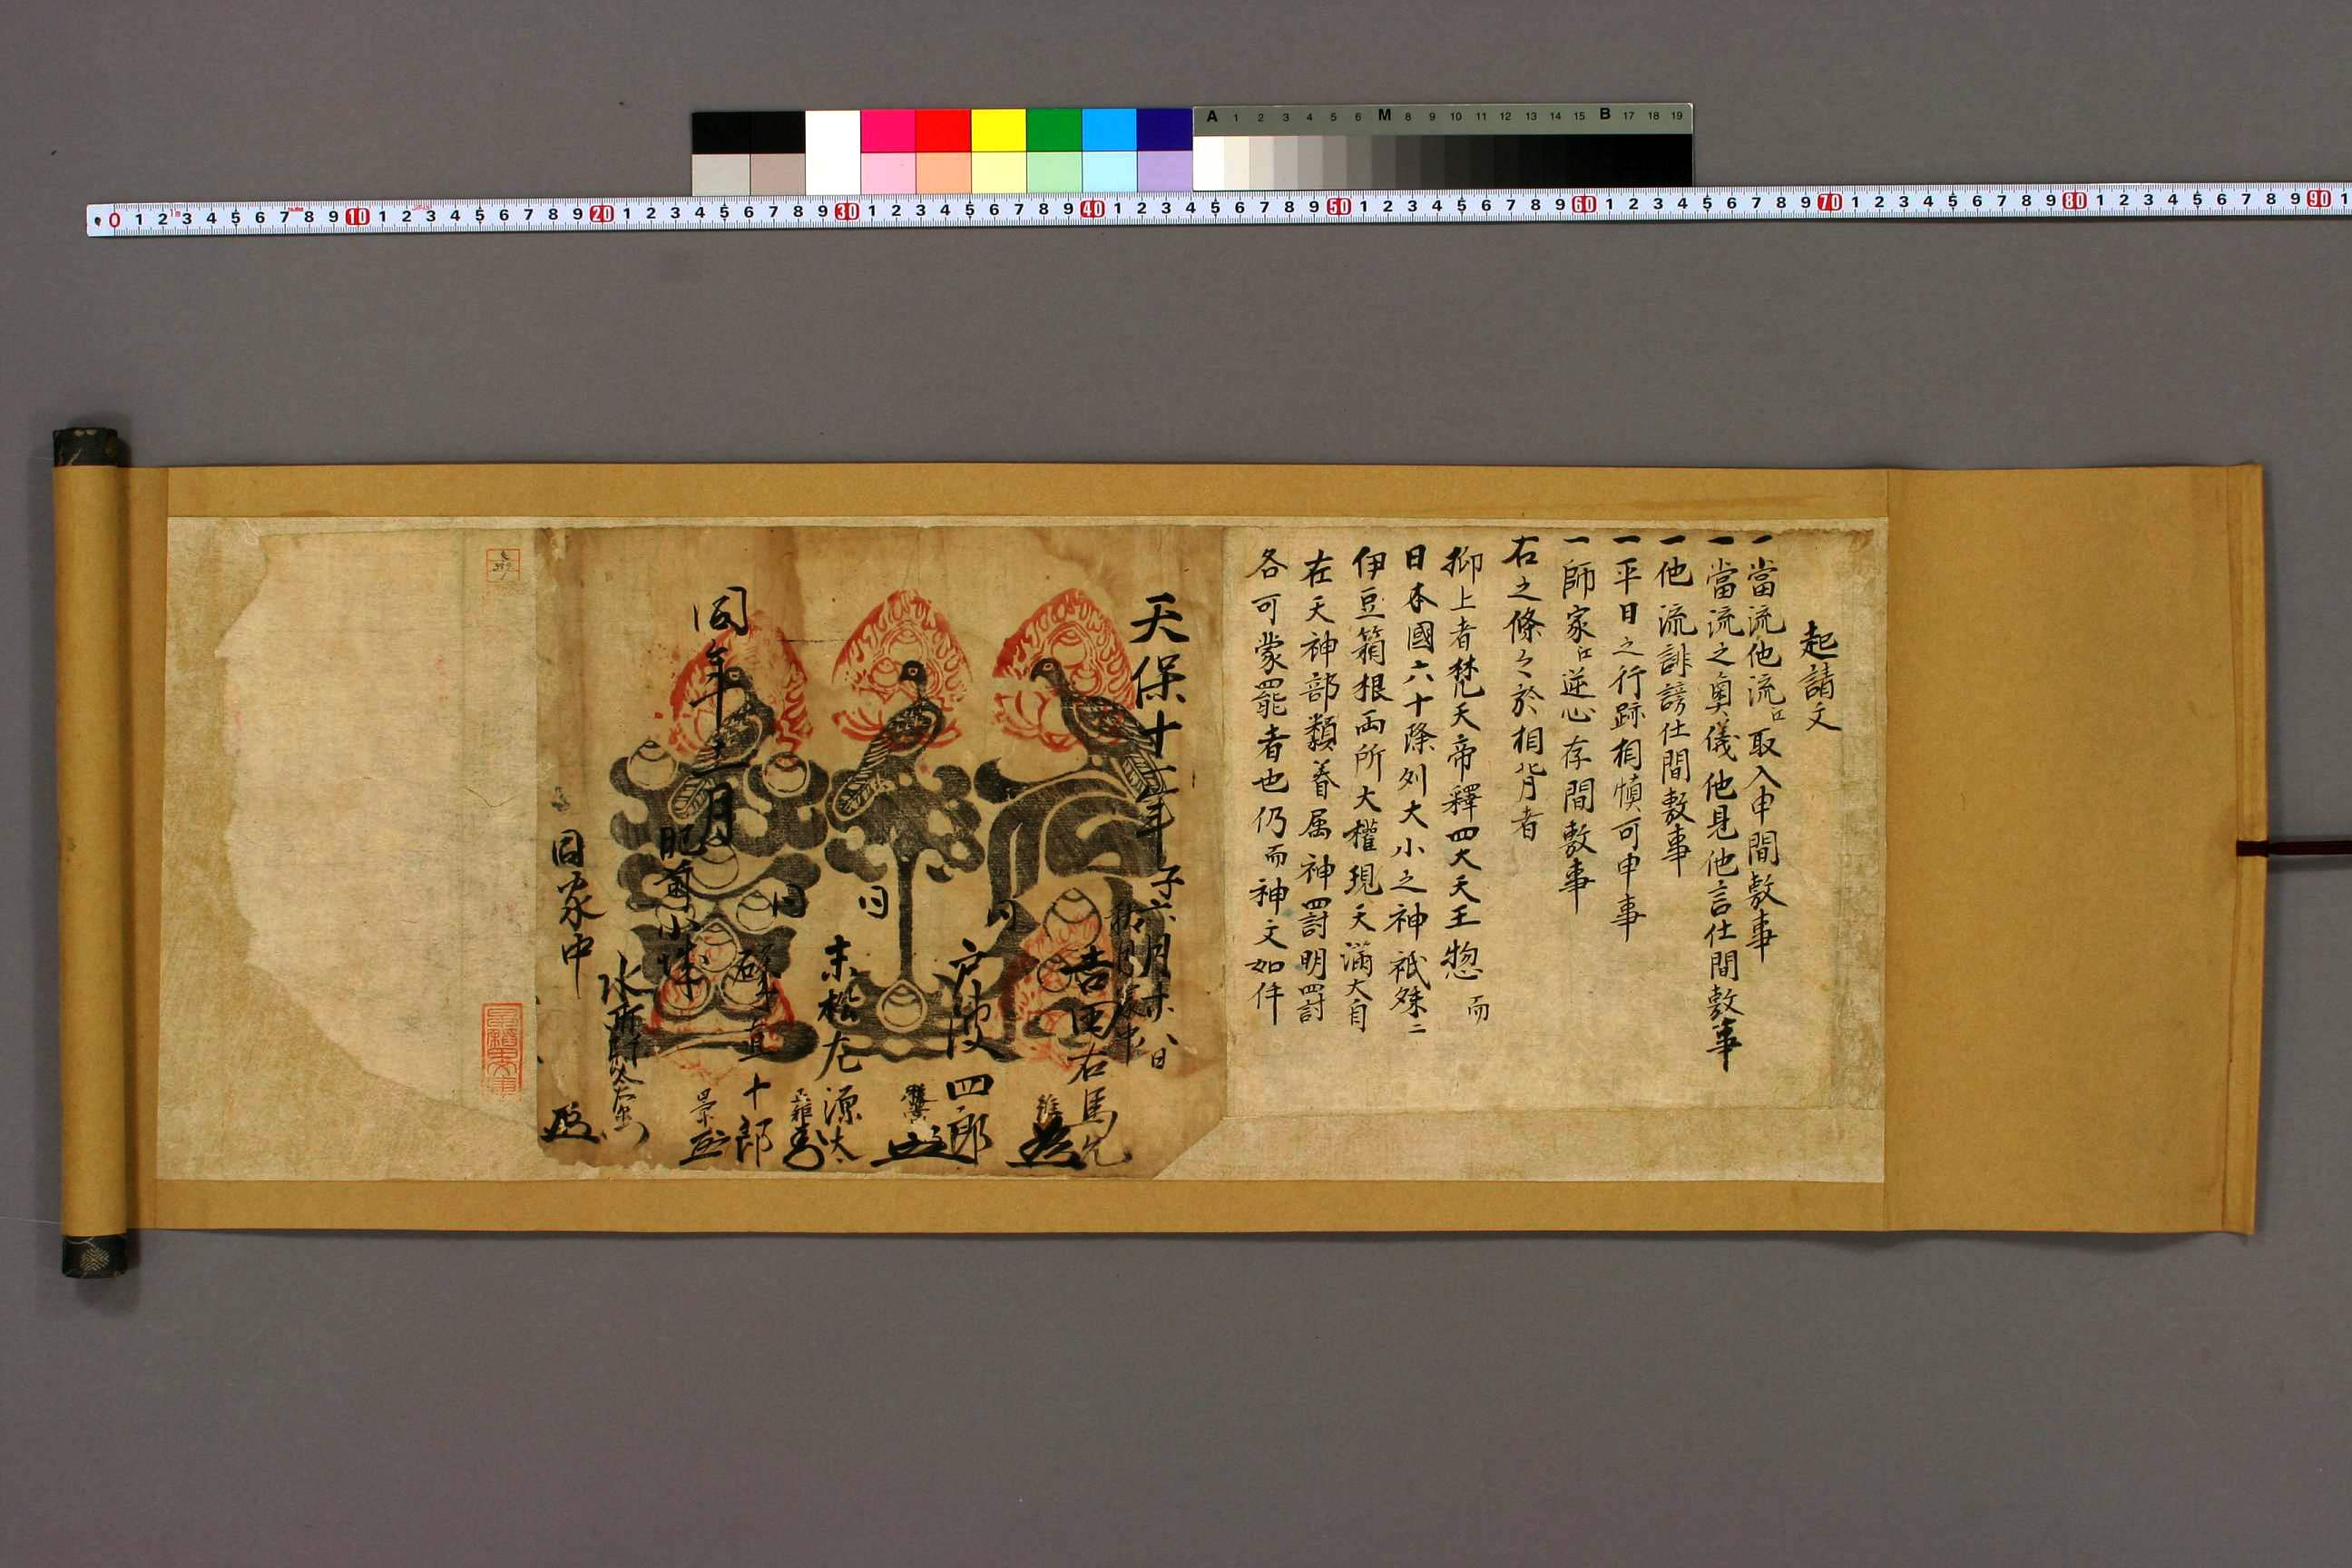 起請文
一當流他流江取入申間敷事
一當流之奥儀他見他言仕間敷事
一他流誹謗仕間敷事
一平日之行跡相慎可申事
一師家江逆心存間敷事
右之條々於相背者
抑上者梵天帝釋四大天王惣而
日本國六十餘列大小之神祇殊ニ
伊豆箱根両所大權現天滿大自
在天神部類眷属神罸明罸
各可蒙罷者也仍而神文如件
天保十二年
子六月廿八日
吉田右馬允
同
戸波四郎
同
末松左源太
同
直十郎
同年十二月
肥前小城
水町
同家中
A 1 2 3 4 5 6 M 8 9 10 11 12 13 14 15 B 17 18 19
0 1 2 3 4 5 6 7 8 9 10 1 2 3 4 5 6 7 8 9 20 1 2 3 4 5 6 7 8 9 30 1 2 3 4 5 6 7 8 9 40 1 2 3 4 5 6 7 8 9 50 1 2 3 4 5 6 7 8 9 60 1 2 3 4 5 6 7 8 9 70 1 2 3 4 5 6 7 8 9 80 1 2 3 4 5 6 7 8 9 90 1